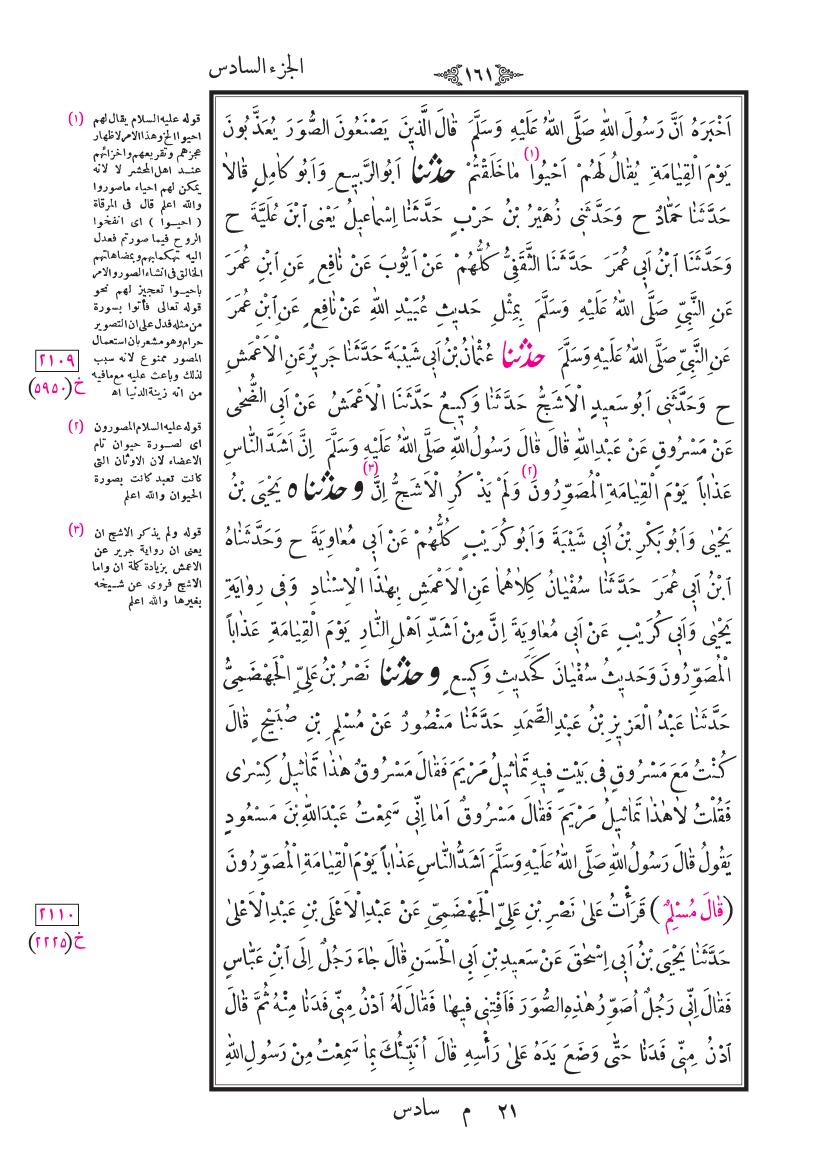 الجزء السادس
١٦١
اَخْبَرَهُ اَنَّ رَسُولَ اللهِ صَلَّى اللهُ عَلَيْهِ وَسَلَّمَ قَالَ الَّذِينَ يَصْنَعُونَ الصُّوَرَ يُعَذَّبُونَ
يَوْمَ الْقِيَامَةِ يُقَالُ لَهُمْ اَحْيُوا (١) مَا خَلَقْتُمْ حَدَّثَنَا اَبُو الرَّبِيعِ وَاَبُو كَامِلٍ قَالَا
حَدَّثَنَا حَمَّادٌ ح وَحَدَّثَنِى زُهَيْرُ بْنُ حَرْبٍ حَدَّثَنَا اِسْمَاعِيلُ يَعْنِى ابْنَ عُلَيَّةَ ح
وَحَدَّثَنَا ابْنُ اَبِى عُمَرَ حَدَّثَنَا الثَّقَفِىُّ كُلُّهُمْ عَنْ اَيُّوبَ عَنْ نَافِعٍ عَنِ ابْنِ عُمَرَ
عَنِ النَّبِىِّ صَلَّى اللهُ عَلَيْهِ وَسَلَّمَ بِمِثْلِ حَدِيثِ عُبَيْدِ اللهِ عَنْ نَافِعٍ عَنِ ابْنِ عُمَرَ
عَنِ النَّبِىِّ صَلَّى اللهُ عَلَيْهِ وَسَلَّمَ حَدَّثَنَا عُثْمَانُ بْنُ اَبِى شَيْبَةَ حَدَّثَنَا جَرِيرٌ عَنِ الْاَعْمَشِ
ح وَحَدَّثَنِى اَبُو سَعِيدٍ الْاَشَجُّ حَدَّثَنَا وَكِيعٌ حَدَّثَنَا الْاَعْمَشُ عَنْ اَبِى الضُّحَى
عَنْ مَسْرُوقٍ عَنْ عَبْدِ اللهِ قَالَ قَالَ رَسُولُ اللهِ صَلَّى اللهُ عَلَيْهِ وَسَلَّمَ اِنَّ اَشَدَّ النَّاسِ
عَذَاباً يَوْمَ الْقِيَامَةِ الْمُصَوِّرُونَ (٢) وَلَمْ يَذْكُرِ الْاَشَجُّ اِنَّ (٣) وحَدَّثَنَاه يَحْيَى بْنُ
يَحْيٰى وَاَبُو بَكْرِ بْنُ اَبِى شَيْبَةَ وَاَبُو كُرَيْبٍ كُلُّهُمْ عَنْ اَبِى مُعَاوِيَةَ ح وَحَدَّثَنَاهُ
ابْنُ اَبِى عُمَرَ حَدَّثَنَا سُفْيَانُ كِلَاهُمَا عَنِ الْاَعْمَشِ بِهٰذَا الْاِسْنَادِ وَفِى رِوَايَةِ
يَحْيٰى وَاَبِى كُرَيْبٍ عَنْ اَبِى مُعَاوِيَةَ اِنَّ مِنْ اَشَدِّ اَهْلِ النَّارِ يَوْمَ الْقِيَامَةِ عَذَاباً
الْمُصَوِّرُونَ وَحَدِيثُ سُفْيَانَ كَحَدِيثِ وَكِيعٍ وحَدَّثَنَا نَصْرُ بْنُ عَلِىٍّ الْجَهْضَمِىُّ
حَدَّثَنَا عَبْدُ الْعَزِيزِ بْنُ عَبْدِ الصَّمَدِ حَدَّثَنَا مَنْصُورٌ عَنْ مُسْلِمِ بْنِ صُبَيْحٍ قَالَ
كُنْتُ مَعَ مَسْرُوقٍ فِى بَيْتٍ فِيهِ تَمَاثِيلُ مَرْيَمَ فَقَالَ مَسْرُوقٌ هٰذَا تَمَاثِيلُ كِسْرٰى
فَقُلْتُ لَا هٰذَا تَمَاثِيلُ مَرْيَمَ فَقَالَ مَسْرُوقٌ اَمَا اِنِّى سَمِعْتُ عَبْدَ اللهِ بْنَ مَسْعُودٍ
يَقُولُ قَالَ رَسُولُ اللهِ صَلَّى اللهُ عَلَيْهِ وَسَلَّمَ اَشَدُّ النَّاسِ عَذَاباً يَوْمَ الْقِيَامَةِ الْمُصَوِّرُونَ
(قَالَ مُسْلِمٌ) قَرَأْتُ عَلٰى نَصْرِ بْنِ عَلِىٍّ الْجَهْضَمِىِّ عَنْ عَبْدِ الْاَعْلَى بْنِ عَبْدِ الْاَعْلٰى
حَدَّثَنَا يَحْيَى بْنُ اَبِى اِسْحٰقَ عَنْ سَعِيدِ بْنِ اَبِى الْحَسَنِ قَالَ جَاءَ رَجُلٌ اِلَى ابْنِ عَبَّاسٍ
فَقَالَ اِنِّى رَجُلٌ اُصَوِّرُ هٰذِهِ الصُّوَرَ فَاَفْتِنِى فِيهَا فَقَالَ لَهُ ادْنُ مِنِّى فَدَنَا مِنْهُ ثُمَّ قَالَ
ادْنُ مِنِّى فَدَنَا حَتّٰى وَضَعَ يَدَهُ عَلٰى رَأْسِهِ قَالَ اُنَبِّئُكَ بِمَا سَمِعْتُ مِنْ رَسُولِ اللهِ
(١) قوله عليه السلام يقال لهم
احيوا الخ وهذا الامر لاظهار
عجزهم وتقريعهم واخزائهم
عند اهل المحشر لا لانه
يمكن لهم احياء ماصوروا
والله اعلم قال فى المرقاة
( احيوا ) اى انفخوا
الروح فيما صورتم فعدل
اليه تهكمابهم وبمضاهاتهم
الخالق فى انشاء الصور والامر
باحيوا تعجيز لهم نحو
قوله تعالى فأتوا بسورة
من مثله فدل على ان التصوير
حرام وهو مشعر بان استعمال
المصور ممنوع لانه سبب
لذلك وباعث عليه مع مافيه
من انه زينة الدنيا اه
٢١٠٩
خ (٥٩٥٠)
(٢) قوله عليه السلام المصورون
اى لصورة حيوان تام
الاعضاء لان الاوثان التى
كانت تعبد كانت بصورة
الحيوان والله اعلم
(٣) قوله ولم يذكر الاشج ان
يعنى ان رواية جرير عن
الاعمش بزيادة كلمة ان واما
الاشج فروى عن شيخه
بغيرها والله اعلم
٢١١٠
خ (٢٢٢٥)
٢١ م سادس